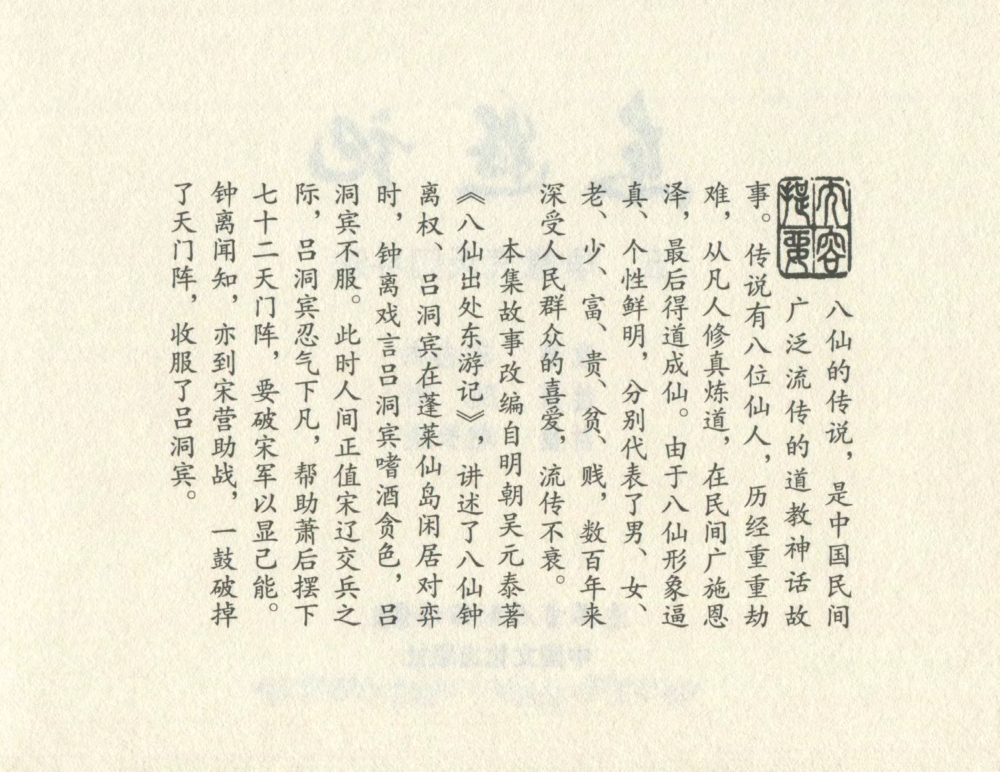 内容提要
八仙的传说，是中国民间
广泛流传的道教神话故
事。传说有八位仙人，历经重重劫
难，从凡人修真炼道，在民间广施恩
泽，最后得道成仙。由于八仙形象逼
真、个性鲜明，分别代表了男、女、
老、少、富、贵、贫、贱，数百年来
深受人民群众的喜爱，流传不衰。
本集故事改编自明朝吴元泰著
《八仙出处东游记》，讲述了八仙钟
离权、吕洞宾在蓬莱仙岛闲居对弈
时，钟离戏言吕洞宾嗜酒贪色，吕
洞宾不服。此时人间正值宋辽交兵之
际，吕洞宾忍气下凡，帮助萧后摆下
七十二天门阵，要破宋军以显己能。
钟离闻知，亦到宋营助战，一鼓破掉
了天门阵，收服了吕洞宾。